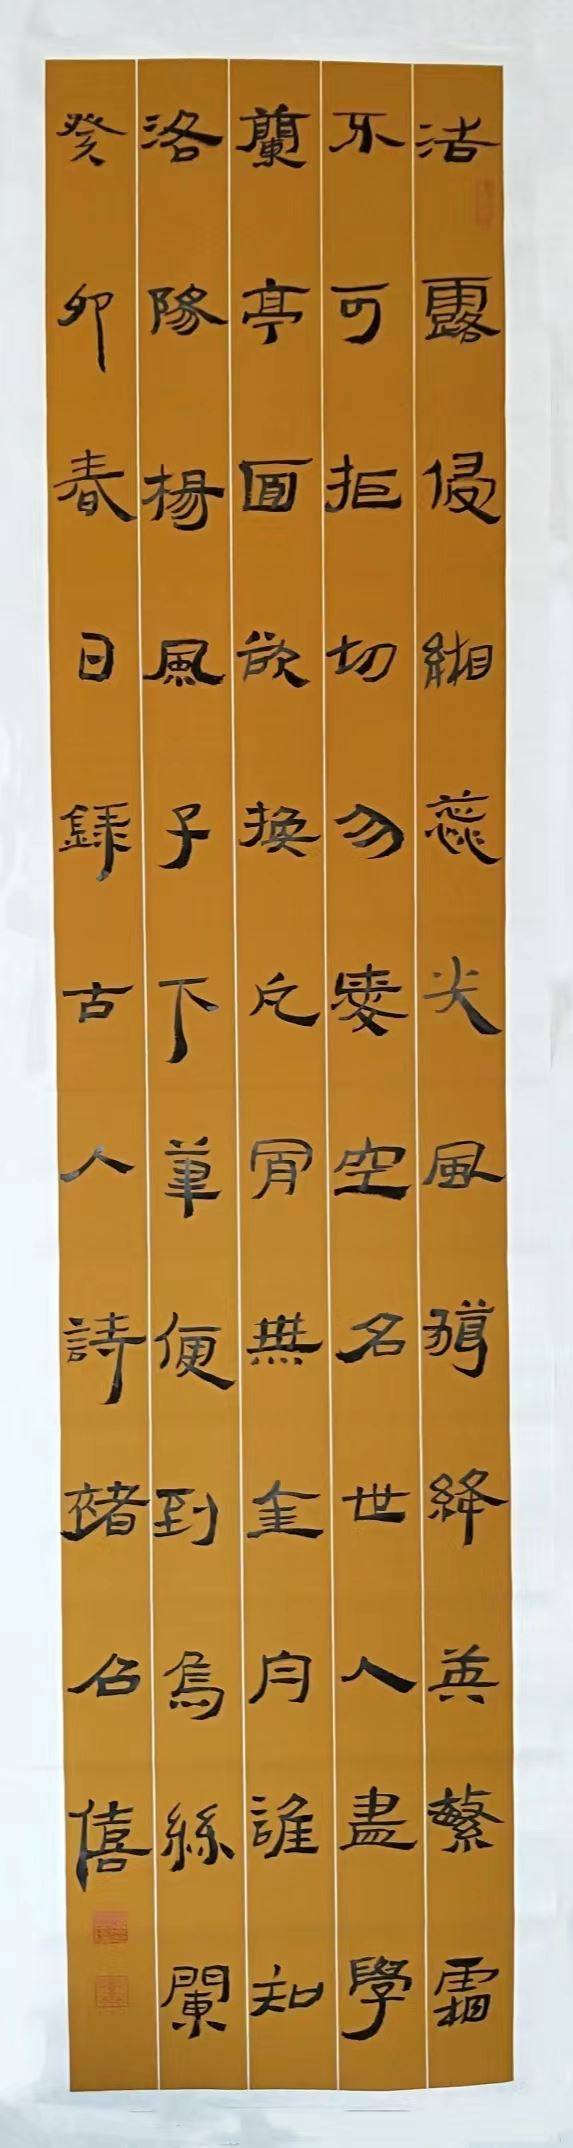 浩露侵緗蕊尖風獵絳英繁霜
不可拒切勿愛空名世人盡學
蘭亭面欲換凡骨無金丹誰知
洛陽楊風子下筆便到烏絲闌
癸卯春日錄古人詩褚召僖